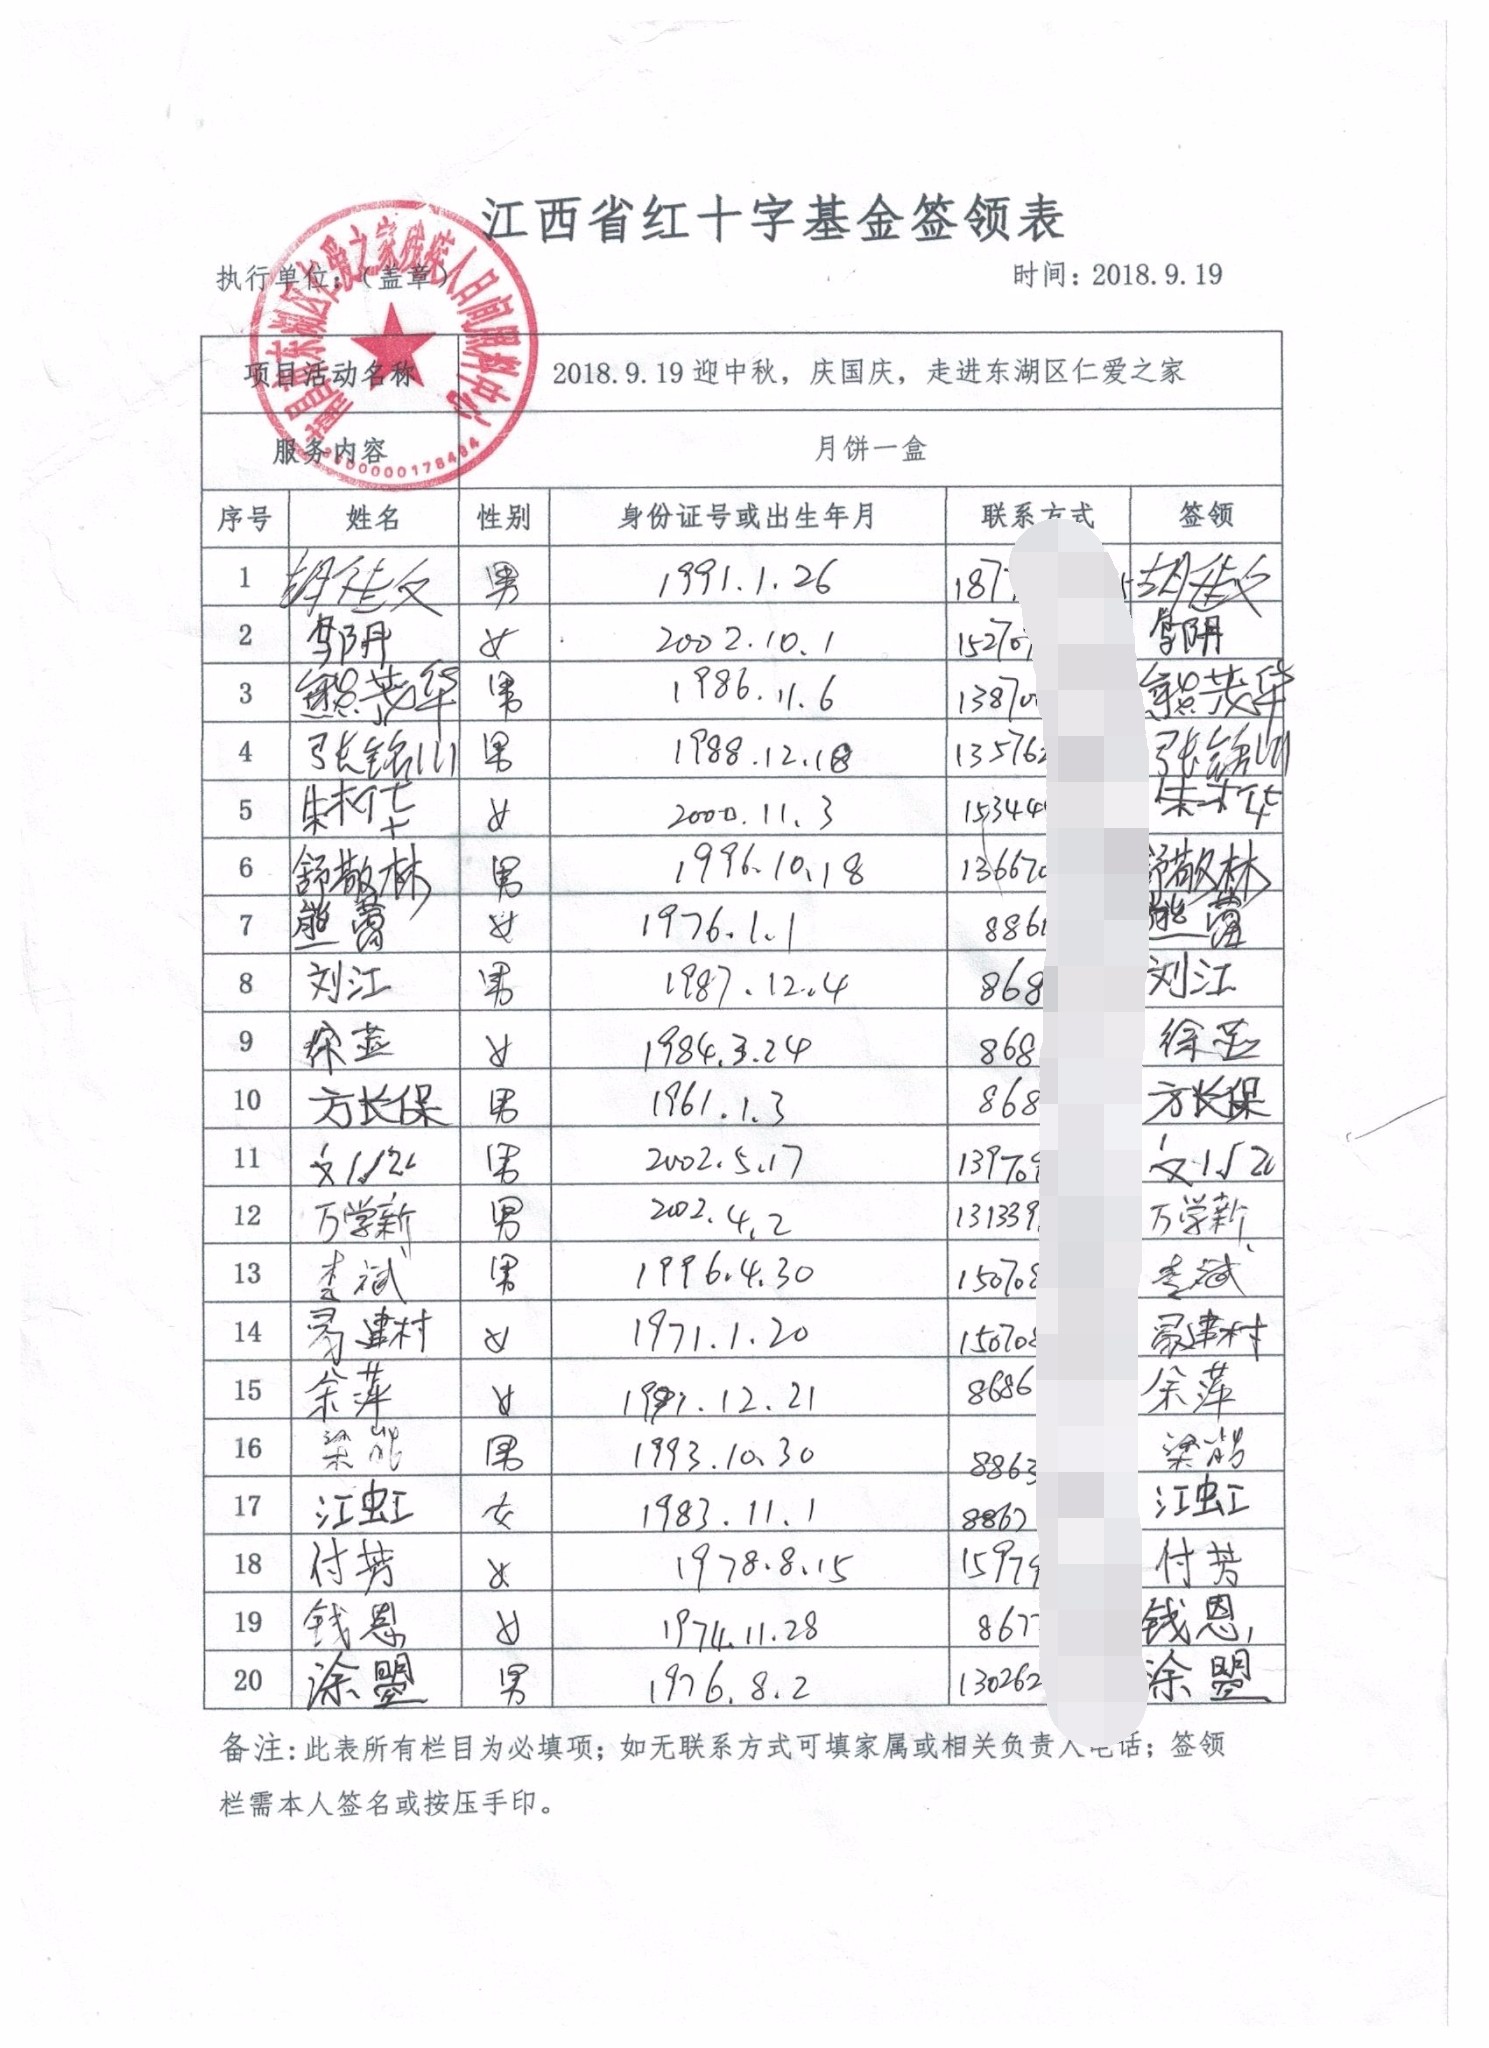 江西省红十字基金签领表
执行单位：（盖章）
时间：2018.9.19
项目活动名称 2018.9.19迎中秋，庆国庆，走进东湖区仁爱之家
服务内容 月饼一盒
3600000178494
序号 姓名 性别 身份证号或出生年月 联系方式 签领
1 男 1991.1.26 187
2 邹阴 女 2002.10.1 15270 邹阴
3 熊茂华 男 1986.11.6 1387 熊茂华
4 张铭川 男 1988.12.18 13576 张铭川
5 女 2000.11.3 15344
6 舒敬林 男 1996.10.18 13667 舒敬林
7 熊蕾 女 1976.1.1 886 熊蕾
8 刘江 男 1987.12.4 868 刘江
9 徐蓝 女 1984.3.24 868 徐蓝
10 方长保 男 1961.1.3 868 方长保
11 男 2002.5.17 1397
12 万学新 男 2002.4.2 13133 万学新
13 李斌 男 1996.4.30 15070 李斌
14 建村 女 1971.1.20 15070 建村
15 余萍 女 12.21 8686 余萍
16 梁 男 1993.10.30 8863 梁
17 江虹 女 1983.11.1 8867 江虹
18 付芳 女 1978.8.15 1597 付芳
19 钱恩 女 1974.11.28 867 钱恩
20 涂曌 男 1976.8.2 13026 涂曌
备注：此表所有栏目为必填项；如无联系方式可填家属或相关负责人电话；签领
栏需本人签名或按压手印。